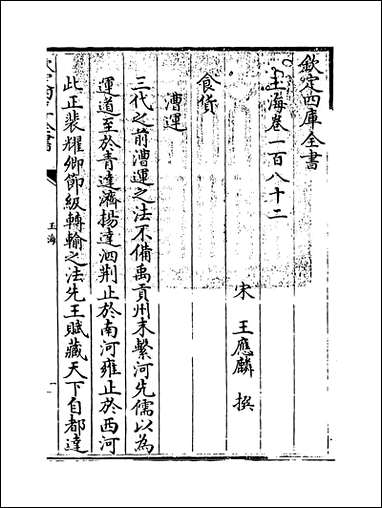 欽定四庫全書
玉海卷一百八十二
宋 王應麟 撰
食貨
漕運
三代之前漕運之法不備禹貢州末繫河先儒以為
運道至於青達濟揚達泗荆止於南河雍止於西河
此正裴耀卿節級轉輸之法先王賦藏天下自都達
玉海
一